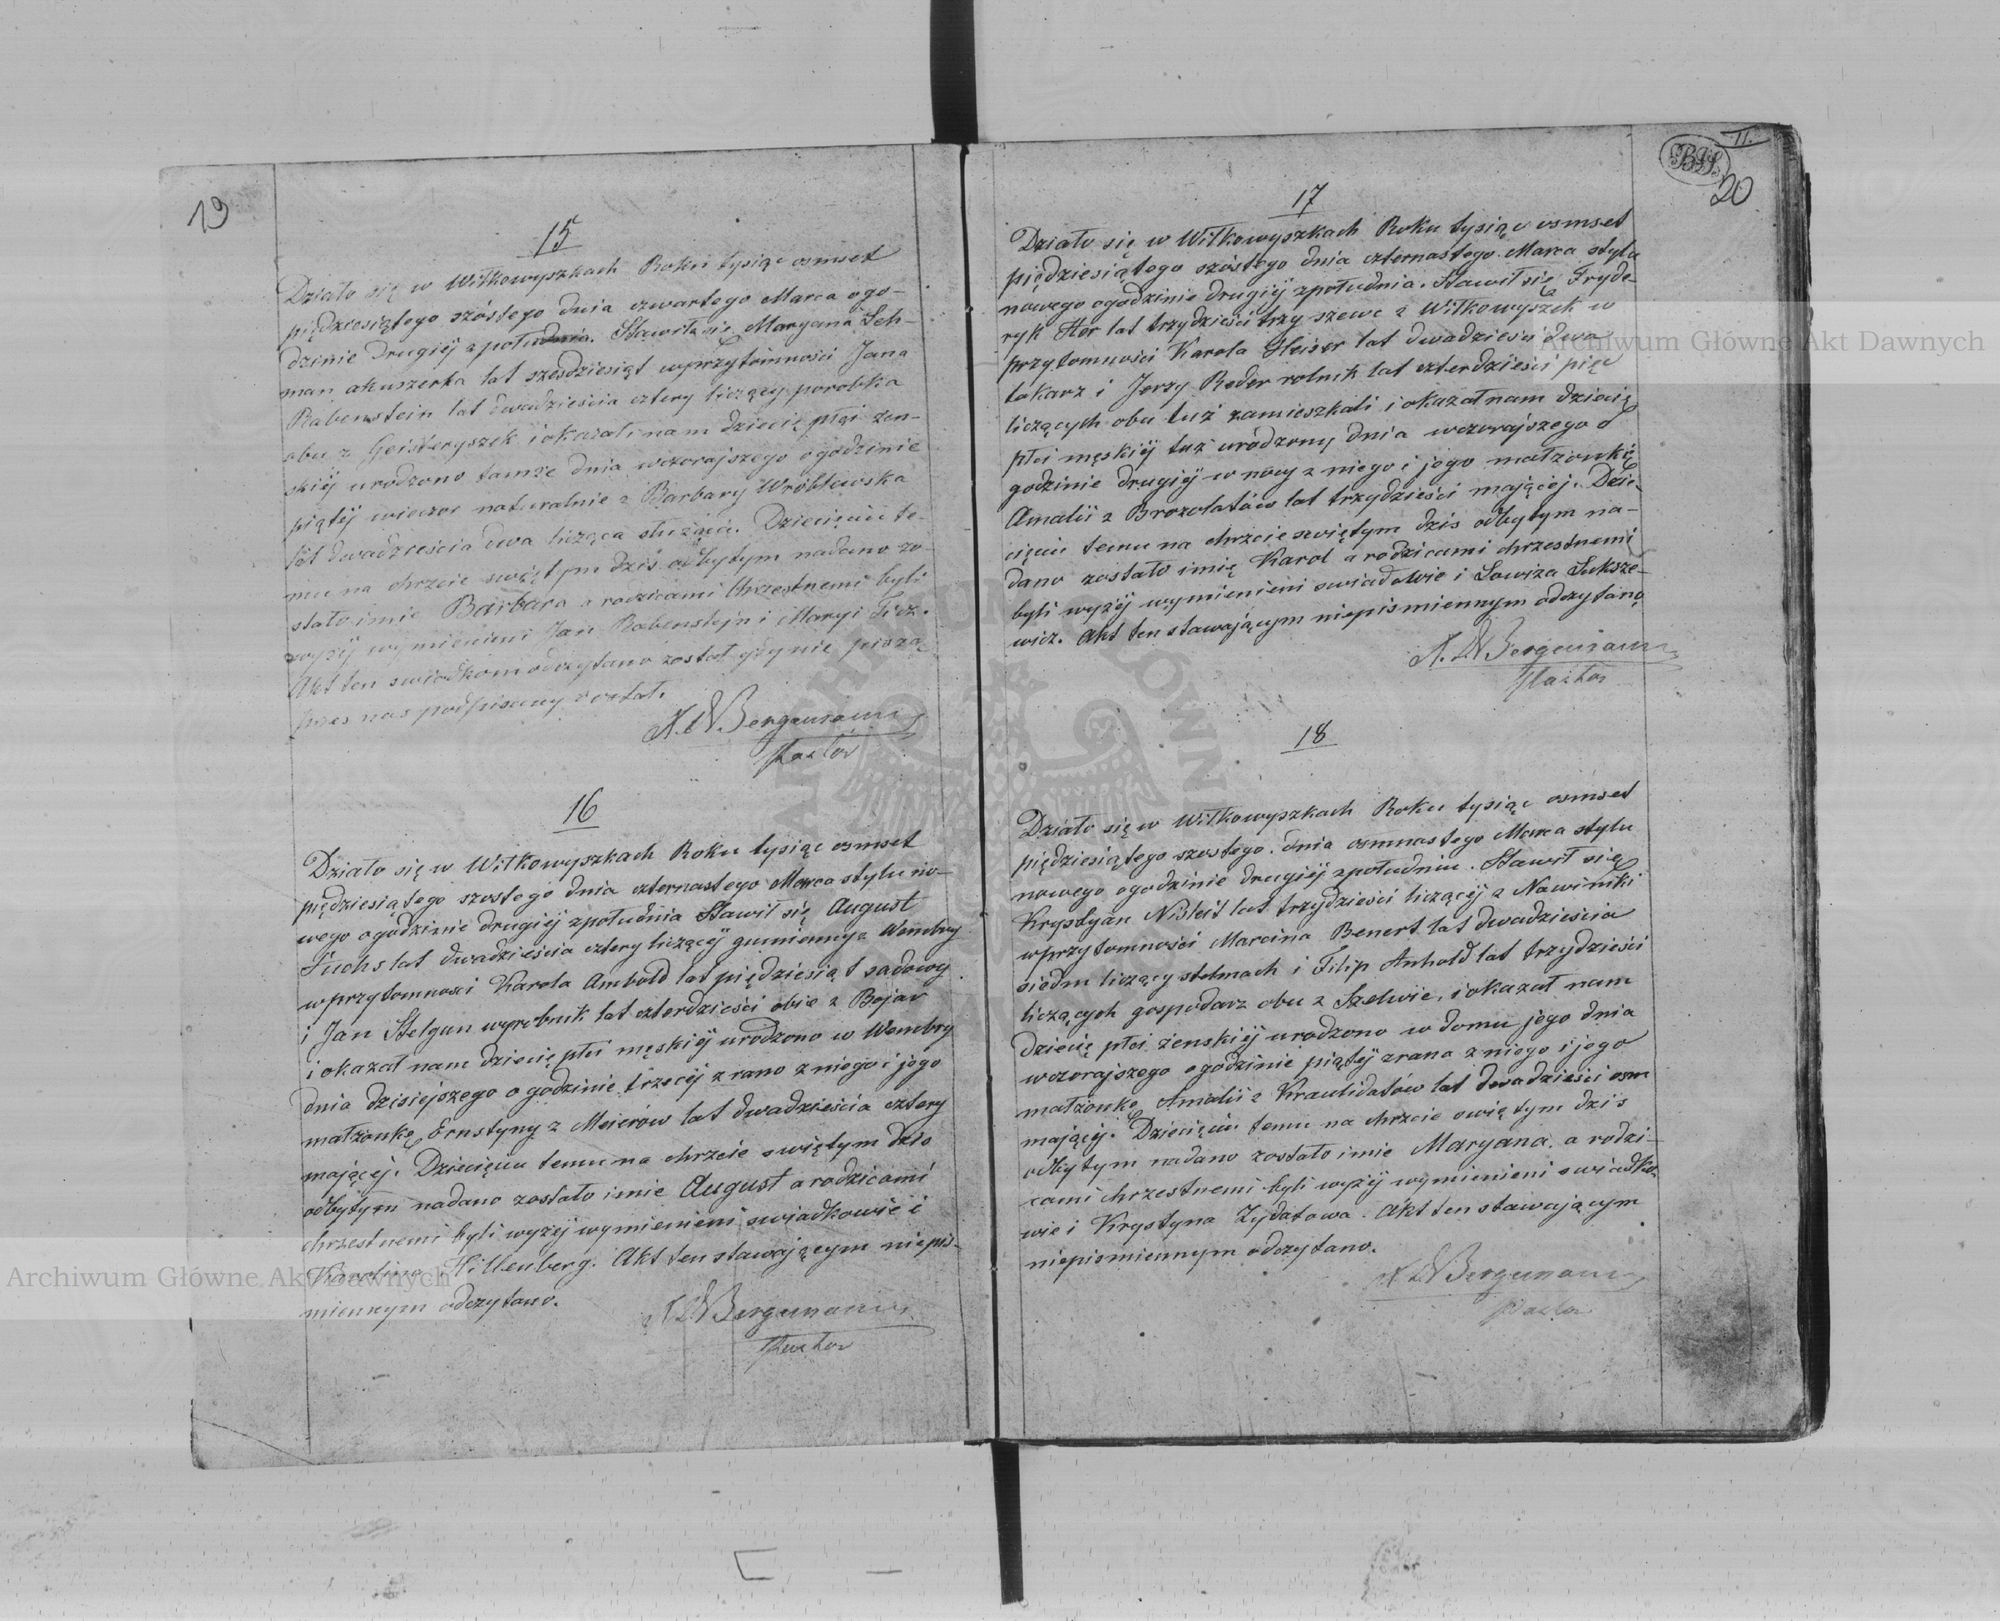 19
15
Działo się w Wiłkowyszkach Roku tysiąc osmset
pięćdziesiątego szóstego dnia czwartego Marca ogo-
dzinie drugiéj zpołudnia. Stawiła się Maryana Leh-
man akuszerka lat sześdziesiąt wprzytomności Jana
Rabenstein lat dwadzieścia cztery liczący porobka
obu z Geisteryszek i okazali nam dziecię płci żen-
skiéj urodzono tamże dnia wczorajszego ogodzinie
piątéj wieczor naturalnie z Barbary Wróblewska
lat dwadzieścia dwa licząca służąca. Dziecięciu te-
mu na chrzcie swiętym dziś odbytym nadano zo-
stało imie Barbara a rodzicami Chrzestnemi byli
wyżéj wymienieni Jan Rabenstejn i Maryi
Akt ten swiadkom odczytano został gdy nie piszą
przes nas podpisany został.
Bergemann
Pastor
16
Działo się w Wiłkowyszkach Roku tysiąc osmset
pięćdziesiątego szostego dnia czternastego Marca stylu no-
wego ogodzinie drugiéj zpołudnia Stawił się August
Fuchs lat dwadzieścia cztery liczącéj gumienny z Wembry
wprzytomności Karola Ambold lat pięćdziesiąt sadowy
i Jan Stelgun wyrobnik lat czterdzieści obie z Bojar
i okazał nam dziecię płci męskiéj urodzono w Wembry
dnia dzisiejszego o godzinie trzeciéj z rano z niego i jego
małżonkę Ernstyny z Meierów lat dwadzieścia cztery
mającéj. Dziecięciu temu na chrzcie swiętym dzis
odbytym nadano zostało imie August a rodzicami
chrzestnemi byli wyżéj wymienieni swiadkowie i
Karolina Hillenberg. Akt ten stawającym niepis-
miennym odczytano.
Bergemann
Pastor
11.
20
17
Działo się w Wiłkowyszkach Roku tysiąc osmset
pięćdziesiątego szóstego dnia czternastego Marca stylu
nowego ogodzinie drugiéj zpołudnia. Stawił się Fryde-
ryk Hör lat trzydzieści trzy szewc z Wiłkowyszek w
przytomności Karola Heiser lat dwadzieścia dwa
tokarz i Jerzy Reder rolnik lat czterdzieści pięć
liczących obu tuż zamieszkali i okazał nam dziecię
płci męskiéj tuż urodzony dnia wczorajszego o
godzinie drugiéj w nocy z niego i jego małżonkę
Amalii z Brozolatów lat trzydzieści mającéj. Dzie-
cięciu temu na chrzcie swiętym dzis odbytym na-
dano zostało imię Karol a rodzicami chrzestnemi
byli wyżéj wymienieni swiadkowie i Lowiza Luksze-
wicz. Akt ten stawającym niepismiennym odczytano
Bergemann
Pastor
18
Działo się w Wiłkowyszkach Roku tysiąc osmset
pięćdziesiątego szostego. dnia osmnastego Marca stylu
nowego ogodzinie drugiéj zpołudniu. Stawił się
Krystyan Nisleit lat trzydzieści liczącéj z Nawiniki
wprzytomności Marcina Benert lat dwadzieścia
siedm liczący stelmach i Filip Anhold lat trzydzieści
liczących gospodarz obu z Szelwie, i okazał nam
dziecię płci żenskiéj urodzono w domu jego dnia
wczorajszego ogodzinie piątéj zrana z niego i jego
małżonkę Amalii z Kraulidatów lat dwadzieści osm
mającéj. Dziecięciu temu na chrzcie swiętym dzis
odbytym nadano zostało imie Maryana. a rodzi-
cami chrzestnemi byli wyżéj wymienieni swiadko-
wie i Krystyna Zydatowa. Akt ten stawającym
niepismiennym odczytano.
Bergemann
Pastor
Archiwum Główne Akt Dawnych
Archiwum Główne Akt Dawnych